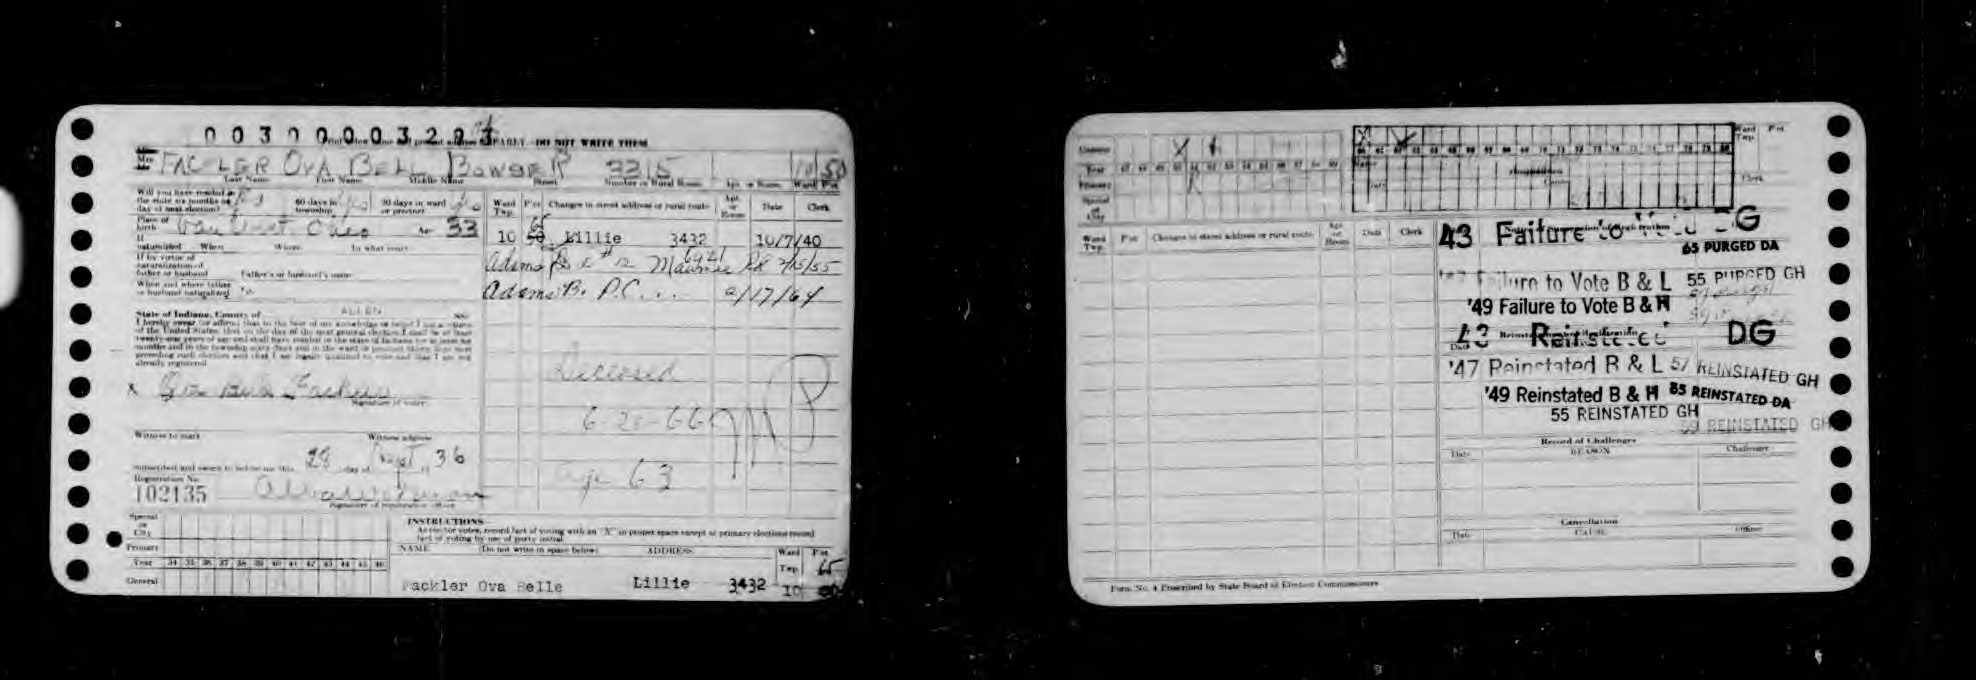 0 0 3 0 0 0 0 3 2 0
DO NOT WRITE THEM
Mrs FACKLER OVA BELL BOWSER 3315 10 50
Last Name First Name Middle Name Street Number or Rural Route Apt. or Room Ward Pct
Will you have resided in the state six months on day of next election? 60 days in township 30 days in ward or precinct
Ward Twp. Pct Changes to street address or rural route Apt. or Room Date Clerk
Place of birth Van Wert Ohio Age 33
65
10 50 Lillie 3432 10/7/40
If naturalized When Where In what court
If by virtue of naturalization of father or husband Father's or husband's name
Adams B # 12 Maumee Rd 2/15/55
When and where father or husband naturalized
Adams B. P.C. 2/17/64
State of Indiana, County of ALLEN
I hereby swear (or affirm) that to the best of my knowledge or belief I am a citizen
of the United States; that on the day of the next general election I shall be at least
twenty-one years of age and shall have resided in the state of Indiana for at least six
months and in the township sixty days and in the ward or precinct thirty days next
preceding such election and that I am legally qualified to vote and that I am not
already registered.
x Ova Bell Fackler
Signature of voter
Deceased
6-20-66
age 63
Witness to mark Witness address
Subscribed and sworn to before me this 28 day of Sept 1936
Registration No.
102135
Signature of registration officer
Special or City
Primary
Year 34 35 36 37 38 39 40 41 42 43 44 45 46
General
INSTRUCTIONS
As elector votes, record fact of voting with an "X" in proper space except at primary elections record
fact of voting by use of party initial
NAME (Do not write in space below) ADDRESS Ward Twp. Pct
65
Fackler Ova Belle Lillie 3432 10
X
Year
Primary
Special or City
Ward Twp. Pct
Clerk
Ward Twp. Pct Changes to street address or rural route Apt. or Room Date Clerk
43 Failure to Vote DG
65 PURGED DA
'47 Failure to Vote B & L 55 PURGED GH
'49 Failure to Vote B & H
43 Reinstated DG
'47 Reinstated B & L 57 REINSTATED GH
'49 Reinstated B & H 65 REINSTATED DA
55 REINSTATED GH
59 REINSTATED GH
Record of Challenges
Date REASON Challenger
Cancellation
Date Cause Officer
Form No. 4 Prescribed by State Board of Election Commissioners